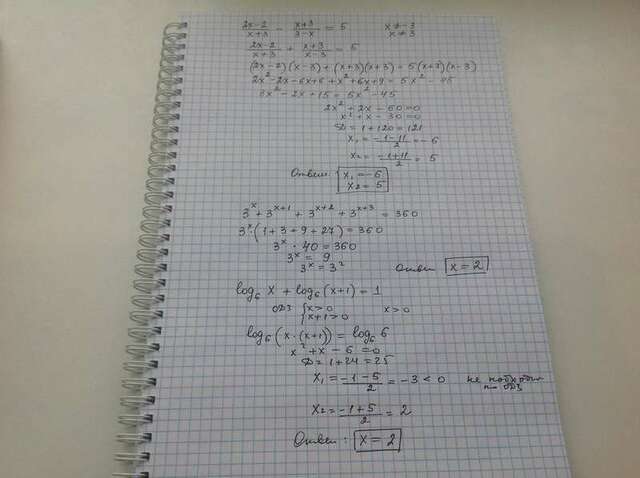 (2x-2)/(x+3) - (x+3)/(3-x) = 5    x ≠ -3
x ≠ 3
(2x-2)/(x+3) + (x+3)/(x-3) = 5
(2x-2)(x-3) + (x+3)(x+3) = 5(x+3)(x-3)
2x² - 2x - 6x + 6 + x² + 6x + 9 = 5x² - 45
3x² - 2x + 15 = 5x² - 45
2x² + 2x - 60 = 0
x² + x - 30 = 0
D = 1 + 120 = 121
x₁ = (-1-11)/2 = -6
x₂ = (-1+11)/2 = 5
Ответ: x₁ = -6
x₂ = 5
3^x + 3^(x+1) + 3^(x+2) + 3^(x+3) = 360
3^x · (1 + 3 + 9 + 27) = 360
3^x · 40 = 360
3^x = 9
3^x = 3²    Ответ x = 2
log₆ x + log₆ (x+1) = 1
ОДЗ { x > 0    x > 0
x+1 > 0
log₆ (x·(x+1)) = log₆ 6
x² + x - 6 = 0
D = 1 + 24 = 25
x₁ = (-1-5)/2 = -3 < 0    не
по ОДЗ
x₂ = (-1+5)/2 = 2
Ответ: x = 2